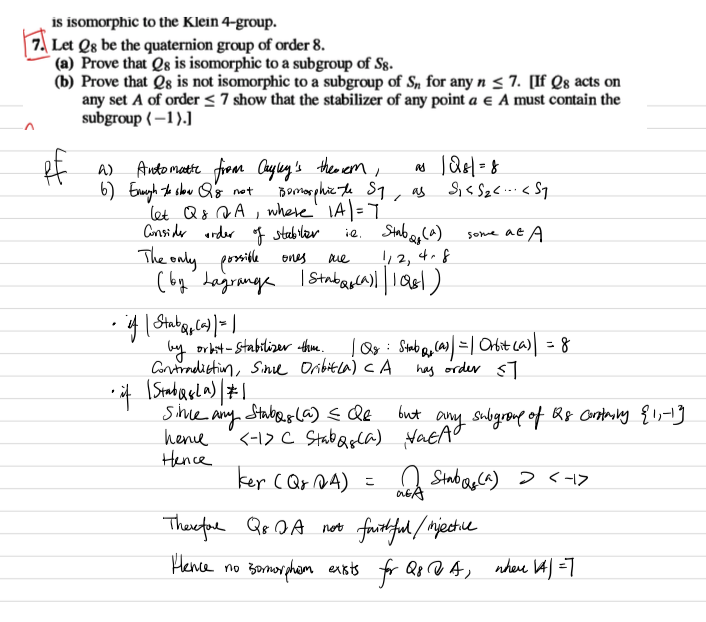 is isomorphic to the Klein 4-group.
7. Let Q₈ be the quaternion group of order 8.
(a) Prove that Q₈ is isomorphic to a subgroup of S₈.
(b) Prove that Q₈ is not isomorphic to a subgroup of Sₙ for any n ≤ 7. [If Q₈ acts on
any set A of order ≤ 7 show that the stabilizer of any point a ∈ A must contain the
subgroup ⟨−1⟩.]
Pf a) Automatic from Cayley's theorem, as |Q₈| = 8
b) Enough to show Q₈ not isomorphic to S₇, as S₁ < S₂ < ⋯ < S₇
let Q₈ ↷ A, where |A| = 7
Consider order of i.e. Stab_Q₈(a) some a ∈ A
The only possible ones are 1, 2, 4, 8
(by Lagrange |Stab_Q₈(a)| | |Q₈|)
· if |Stab_Q₈(a)| = 1
by orbit-stabilizer thm. |Q₈ : Stab_Q₈(a)| = |Orbit(a)| = 8
Contradiction, since Orbit(a) ⊂ A has order ≤ 7
· if |Stab_Q₈(a)| ≠ 1
Since any Stab_Q₈(a) ≤ Q₈ but any subgroup of Q₈ {1,-1}
hence <-1> ⊂ Stab_Q₈(a) ∀a∈A
Hence
ker (Q₈ ↷ A) = ⋂_{a∈A} Stab_Q₈(a) ⊃ <-1>
Therefore Q₈ ↷ A not faithful/injective
Hence no isomorphism exists for Q₈ ↷ A, where |A| = 7